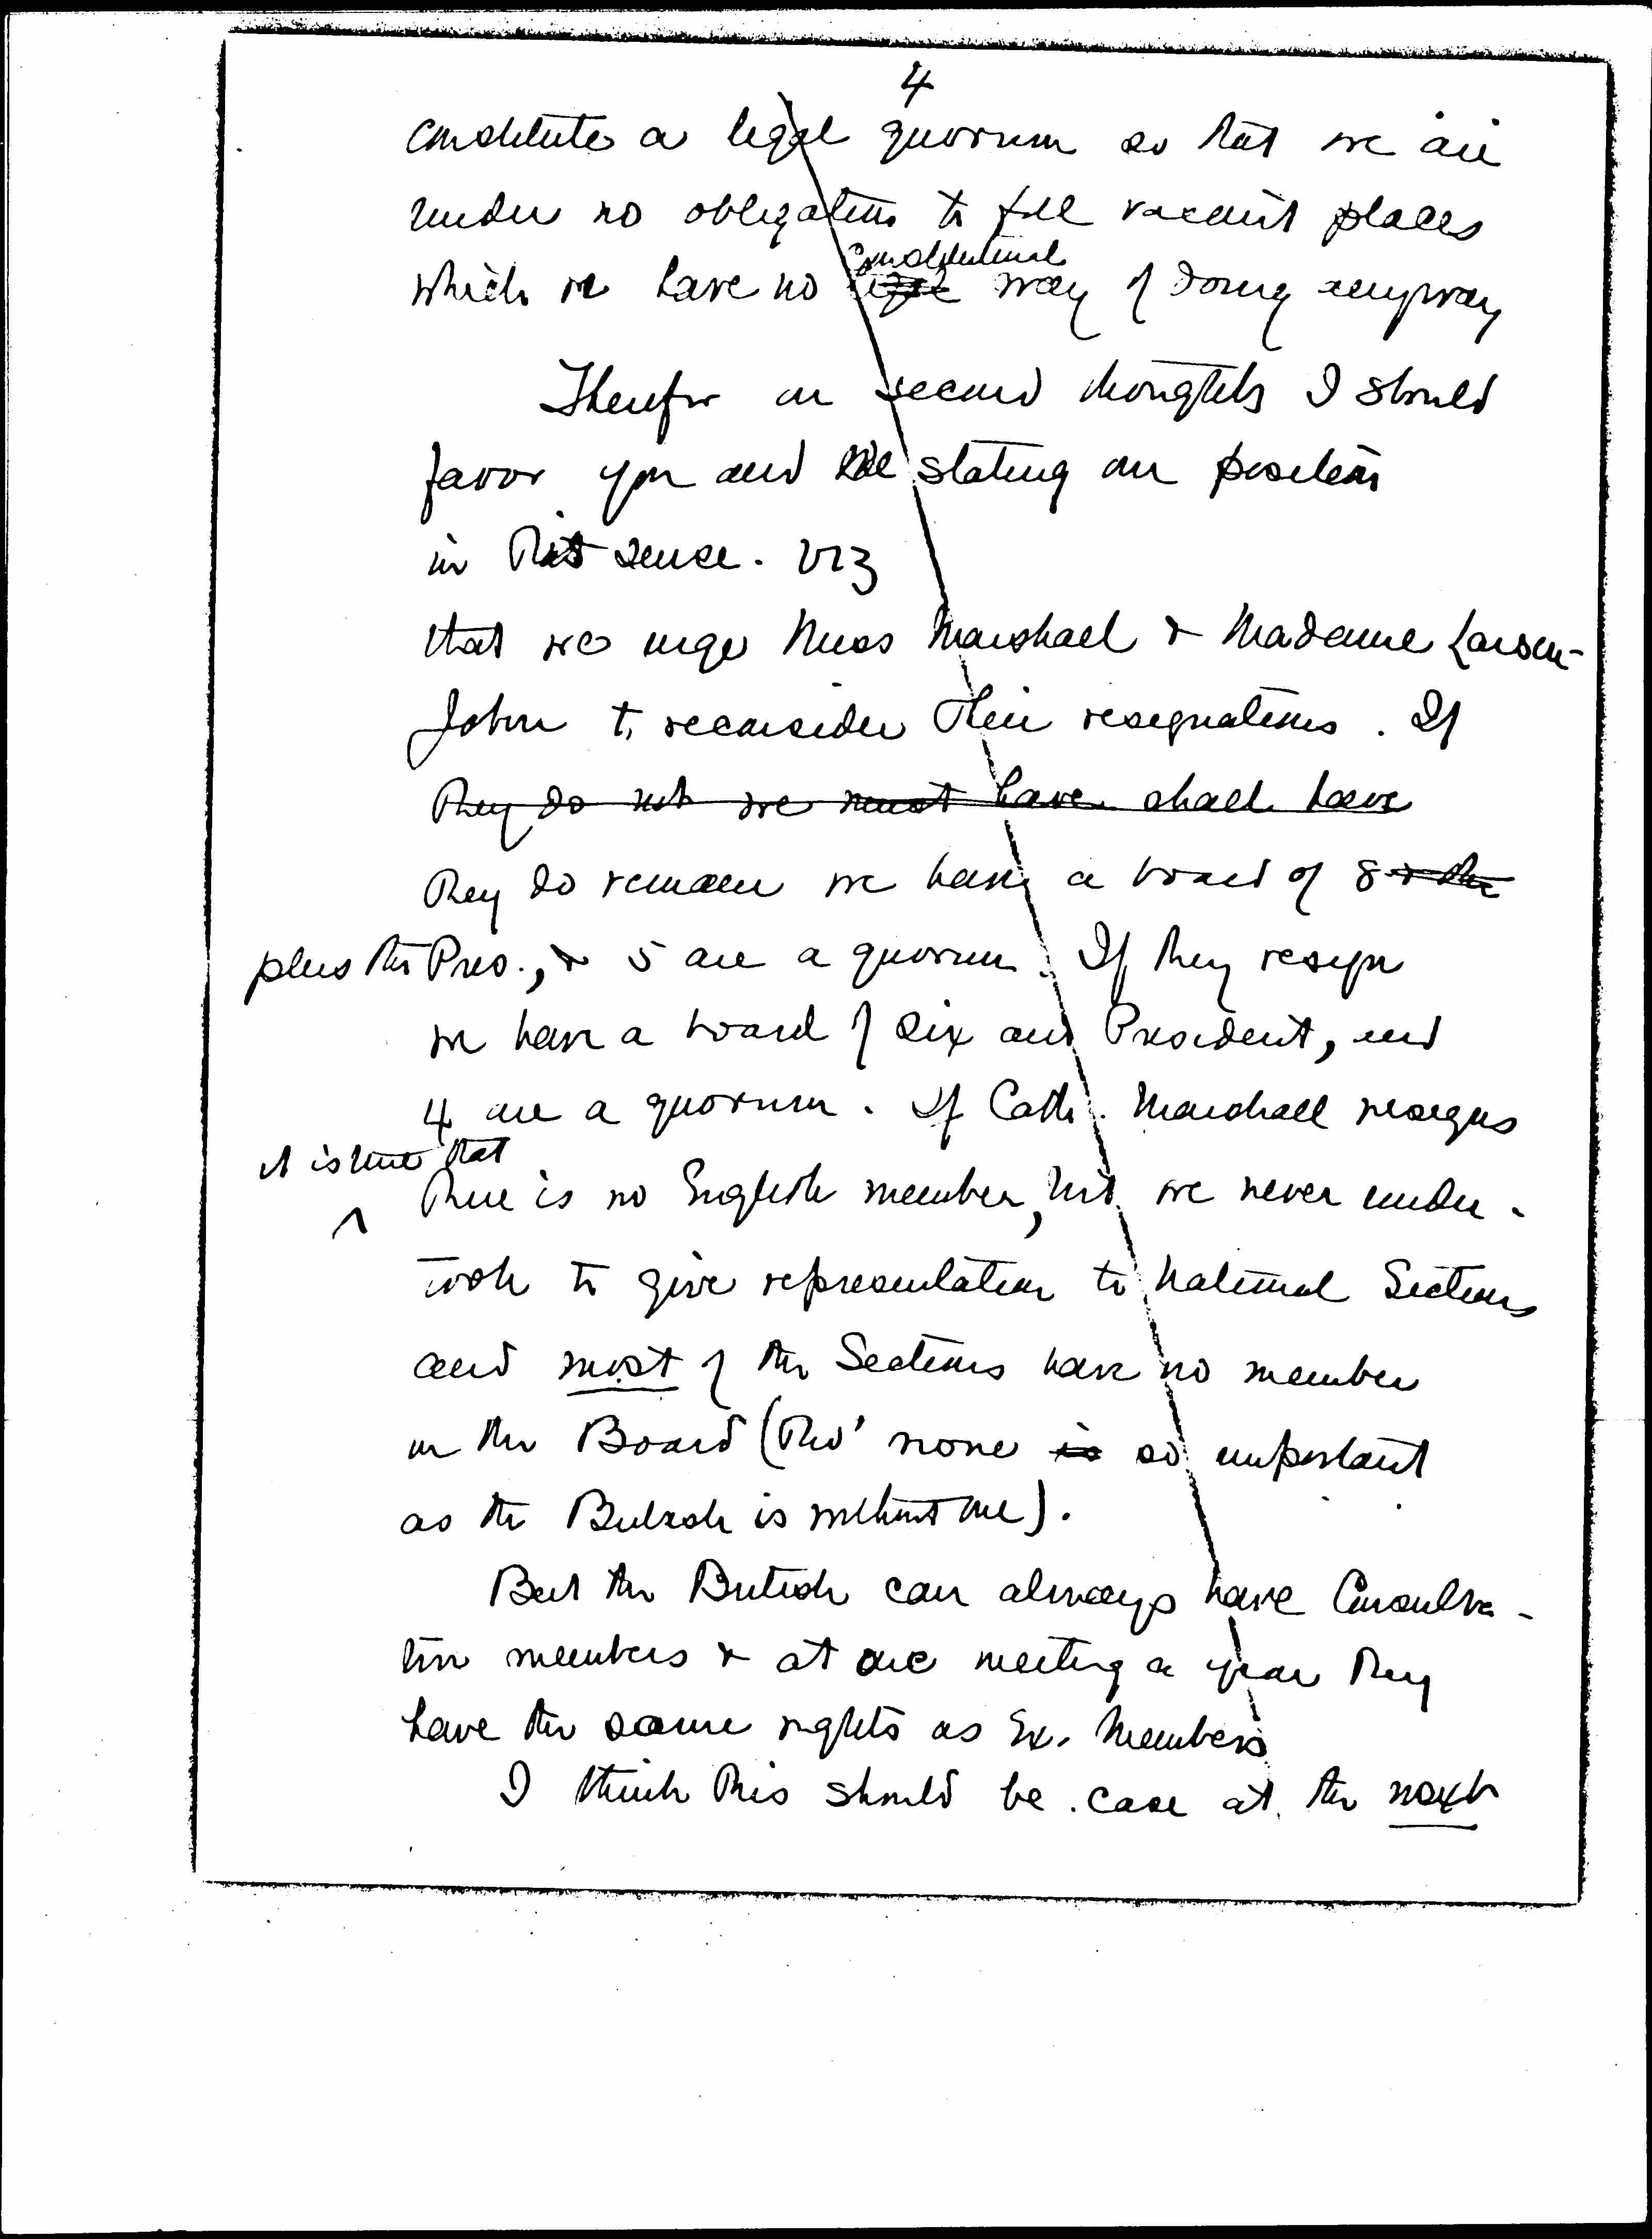 4
constitute a legal quorum so that we are
under no obligation to fill vacant places
constitutional
which we have no legal way of doing anyway
Therefor on second thoughts I should
favor you and me stating our position
in this sense. viz
that we urge Miss Marshall & Madame Larsen-
Jahn to reconsider their resignations. If
they do not we must have shall have
they do remain we have a board of 8 & the
plus the Pres., & 5 are a quorum. If they resign
we have a board of six and President, and
4 are a quorum. If Cath. Marshall resigns
it is true that
there is no English member, but we never under-
took to give representation to National Sections
and most of the Sections have no member
on the Board (tho' none is so important
as the British is without one).
But the British can always have Consulta-
tive members & at one meeting a year they
have the same rights as Ex. Members
I think this should be case at the next